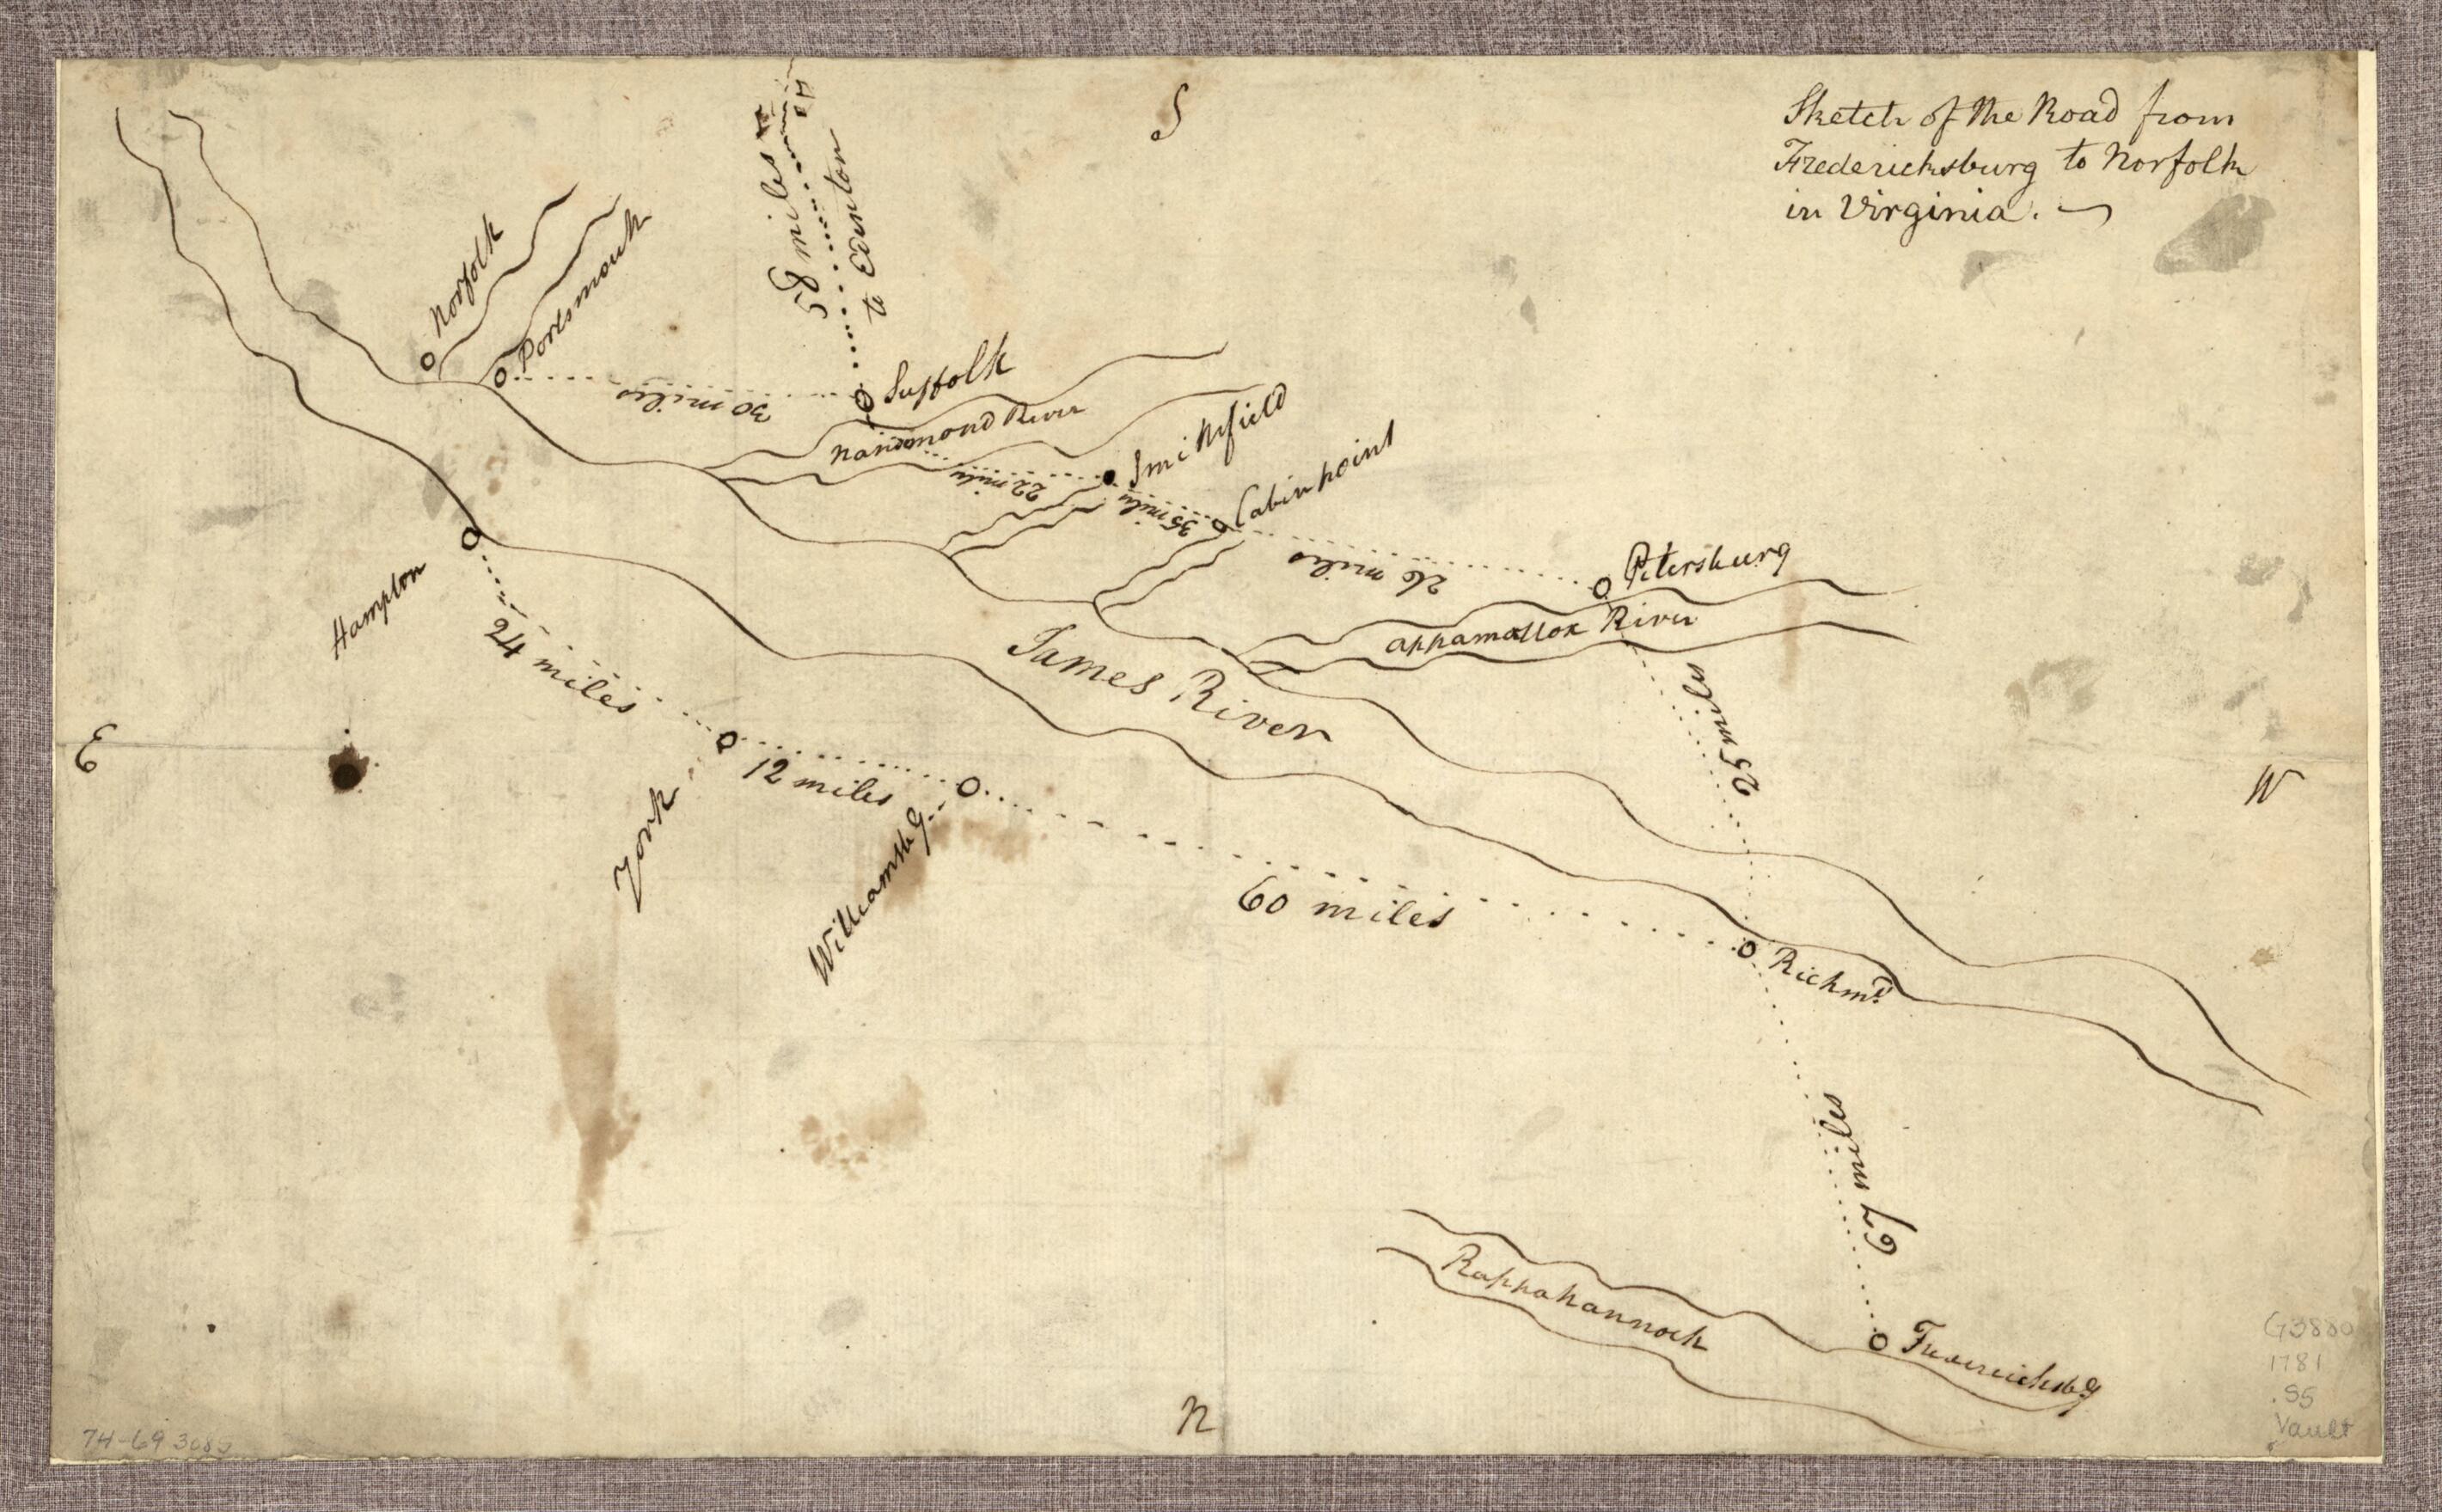 S
Sketch of the Road from
Fredericksburg to Norfolk
in Virginia.
Norfolk
Portsmouth
58 miles
to Edenton
30 miles
Suffolk
Nansmond River
22 miles
Smithfield
35 miles
Cabin point
26 miles
Petersburg
Appamattox River
25 miles
James River
Hampton
24 miles
E
W
York
12 miles
Williamsbg.
60 miles
Richmd.
67 miles
Rappahannock
Fredericksbg
N
74-69 3083
G3880
1781
.S5
Vault